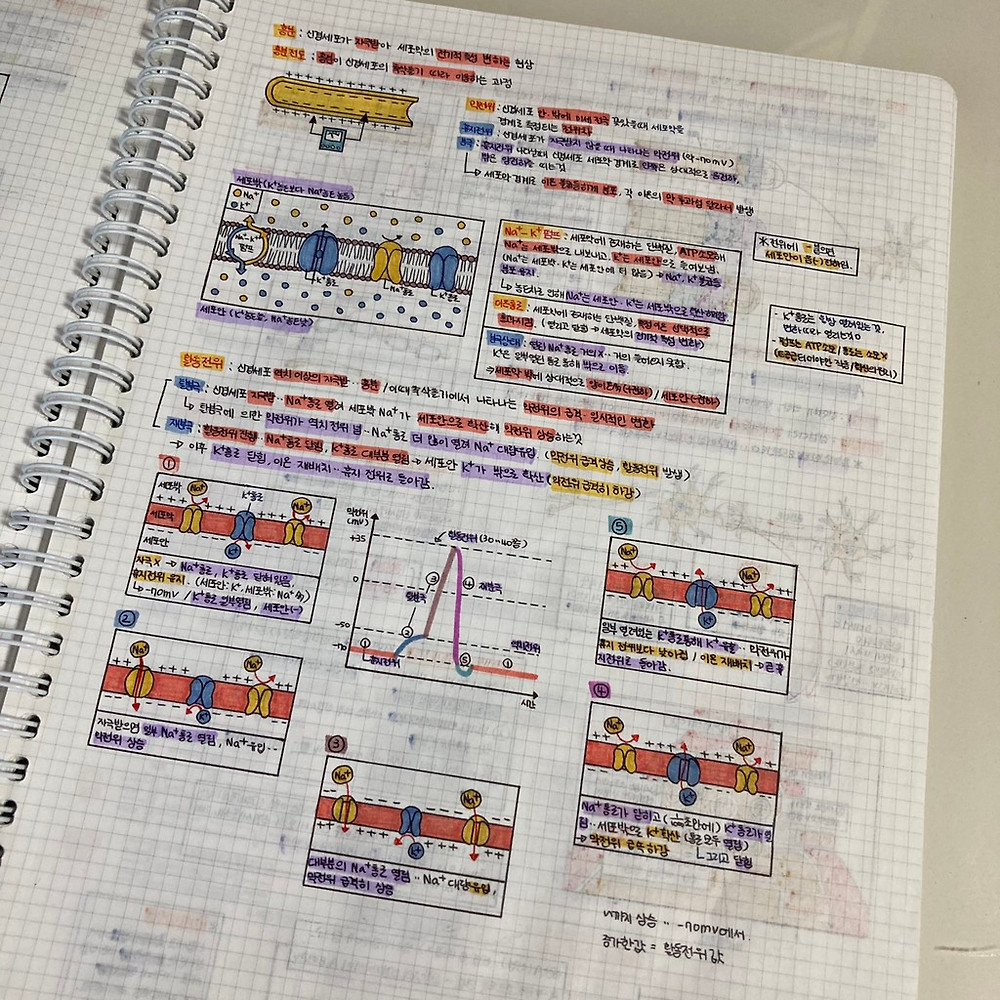 흥분 : 신경세포가 자극받아 세포막의 전기적 특성 변하는 현상
흥분전도 : 흥분이 신경세포의 축삭돌기 따라 이동하는 과정
막전위 : 신경세포 안·밖에 미세전극 꽂았을때 세포막을
경계로 측정되는 전위차
휴지전위 : 신경세포가 자극받지 않을 때 나타나는 막전위 (약 -70mv)
분극 : 휴지전위 나타낼때 신경세포 세포막 경계로 안쪽은 상대적으로 음전하,
밖은 양전하를 띠는것
↳ 세포막 경계로 이온 불균등하게 분포, 각 이온의 막 투과성 달라서 발생
세포밖 (K⁺농도보다 Na⁺농도 높음)
Na⁺
K⁺
Na⁺-K⁺
펌프
K⁺통로
Na⁺통로
K⁺통로
세포안 (K⁺농도높, Na⁺농도낮)
Na⁺-K⁺펌프 : 세포막에 존재하는 단백질, ATP소모해
Na⁺는 세포밖으로 내보내고, K⁺는 세포안으로 들여보냄.
(Na⁺는 세포밖·K⁺는 세포안에 더 많음) → Na⁺, K⁺불균등
분포 유지.
↳ 농도차로 인해 Na⁺는 세포안·K⁺는 세포밖으로 확산하려함
이온통로 : 세포막에 존재하는 단백질, 특정 이온 선택적으로
통과시킴. (열리고 닫힘 → 세포막의 전기적 특성 변화)
분극상태 : 열린 Na⁺통로 거의 x ·· 거의 들어오지 못함.
K⁺은 일부 열린 통로 통해 밖으로 이동.
→ 세포막 밖에 상대적으로 양이온多 (+전하) / 세포안(-전하)
※ 전위에 -붙으면
세포안이 음(-)전하임.
- K⁺통로는 항상 열려있는 것,
- 펌프는 ATP소모 / 통로는 소모 x
활동전위 : 신경세포 역치 이상의 자극받·· 흥분 / 이때 축삭돌기에서 나타나는 막전위의 급격·일시적인 변화
탈분극 : 신경세포 자극받·· Na⁺통로 열려 세포밖 Na⁺가 세포안으로 확산해 막전위 상승하는것
↳ 탈분극에 의한 막전위가 역치 전위 넘·· Na⁺통로 더 많이 열려 Na⁺ 대량유입. (막전위 급격상승, 활동전위 발생)
재분극 : Na⁺통로 닫힘, K⁺통로 대부분 열림 → 세포안 K⁺가 밖으로 확산 (막전위 급격히 하강)
→ 이후 K⁺통로 닫힘, 이온 재배치·· 휴지 전위로 돌아감.
①
세포밖
Na⁺
K⁺통로
Na⁺
세포막
세포안
K⁺
자극 x → Na⁺통로, K⁺통로 닫혀있음,
휴지전위 유지. (세포안:K⁺, 세포밖:Na⁺多)
↳ -70mv / K⁺통로 일부열림, 세포안(-)
②
Na⁺
Na⁺
K⁺
자극받으면 일부 Na⁺통로 열림, Na⁺유입··
막전위 상승
막전위
(mv)
+35
0
-50
-70
활동전위 (30~40쯤)
③
탈분극
④
재분극
②
역치전위
①
휴지전위
⑤
①
시간
③
Na⁺
Na⁺
K⁺
대부분의 Na⁺통로 열림·· Na⁺ 대량유입,
막전위 급격히 상승
⑤
Na⁺
Na⁺
K⁺
일부 열려있는 K⁺통로통해 K⁺유출·· 막전위가
휴지 전위보다 낮아짐 / 이온 재배치 → 곧 휴
지전위로 돌아감.
④
Na⁺
Na⁺
K⁺
Na⁺통로가 닫히고 K⁺통로가 열
림·· 세포밖으로 K⁺확산 (통로 모두 열림)
→ 막전위 급속 하강
↳ 그리고 닫힘
까지 상승 ·· -70mv에서
증가한값 = 활동전위값